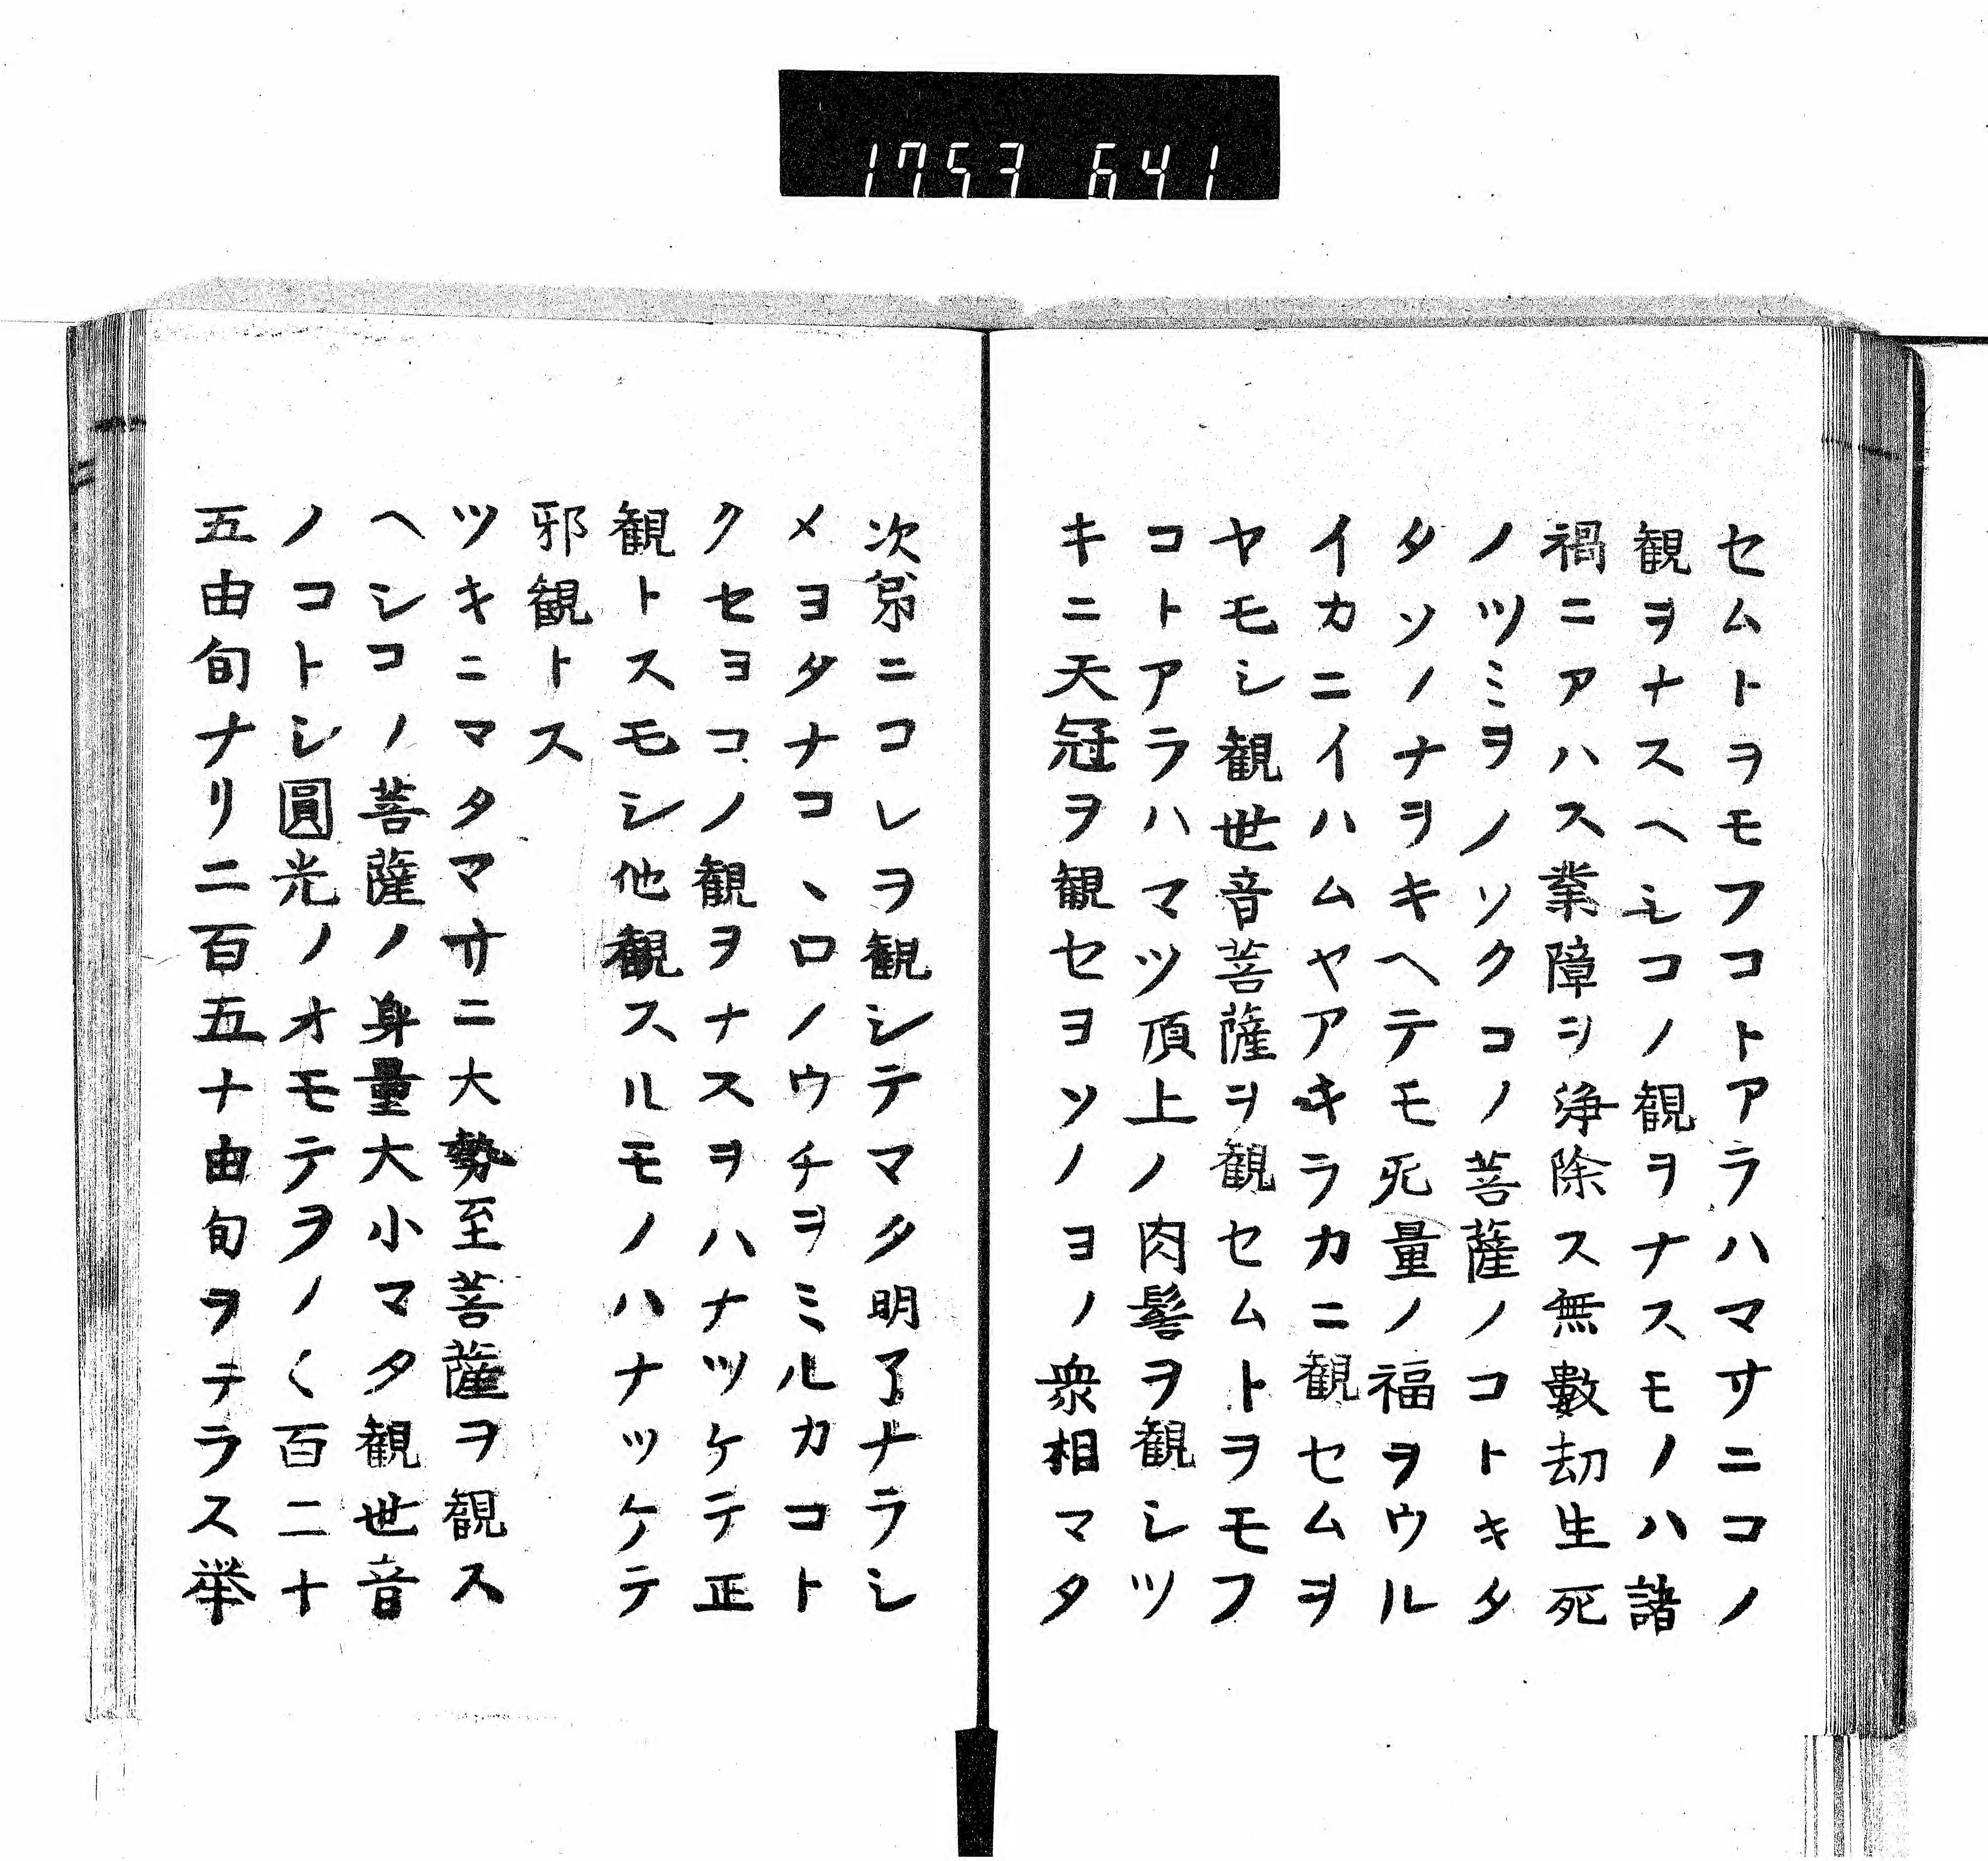 1753 641
セムトヲモフコトアラハマサニコノ
観ヲナスヘシコノ観ヲナスモノハ諸
禍ニアハス業障ヲ浄除ス無數劫生死
ノツミヲノソクコノ菩薩ノコトキタ
タソノナヲキヘテモ旡量ノ福ヲウル
イカニイハムヤアキラカニ観セムヲ
ヤモシ観世音菩薩ヲ観セムトヲモフ
コトアラハマツ頂上ノ肉髻ヲ観シツ
キニ天冠ヲ観セヨソノヨノ衆相マタ
次第ニコレヲ観シテマタ明了ナラシ
メヨタナコヽロノウチヲミルカコト
クセヨコノ観ヲナスヲハナツケテ正
観トスモシ他観スルモノハナツケテ
邪観トス
ツキニマタマサニ大勢至菩薩ヲ観ス
ヘシコノ菩薩ノ身量大小マタ観世音
ノコトシ圓光ノオモテヲノ〱百二十
五由旬ナリ二百五十由旬ヲテラス挙